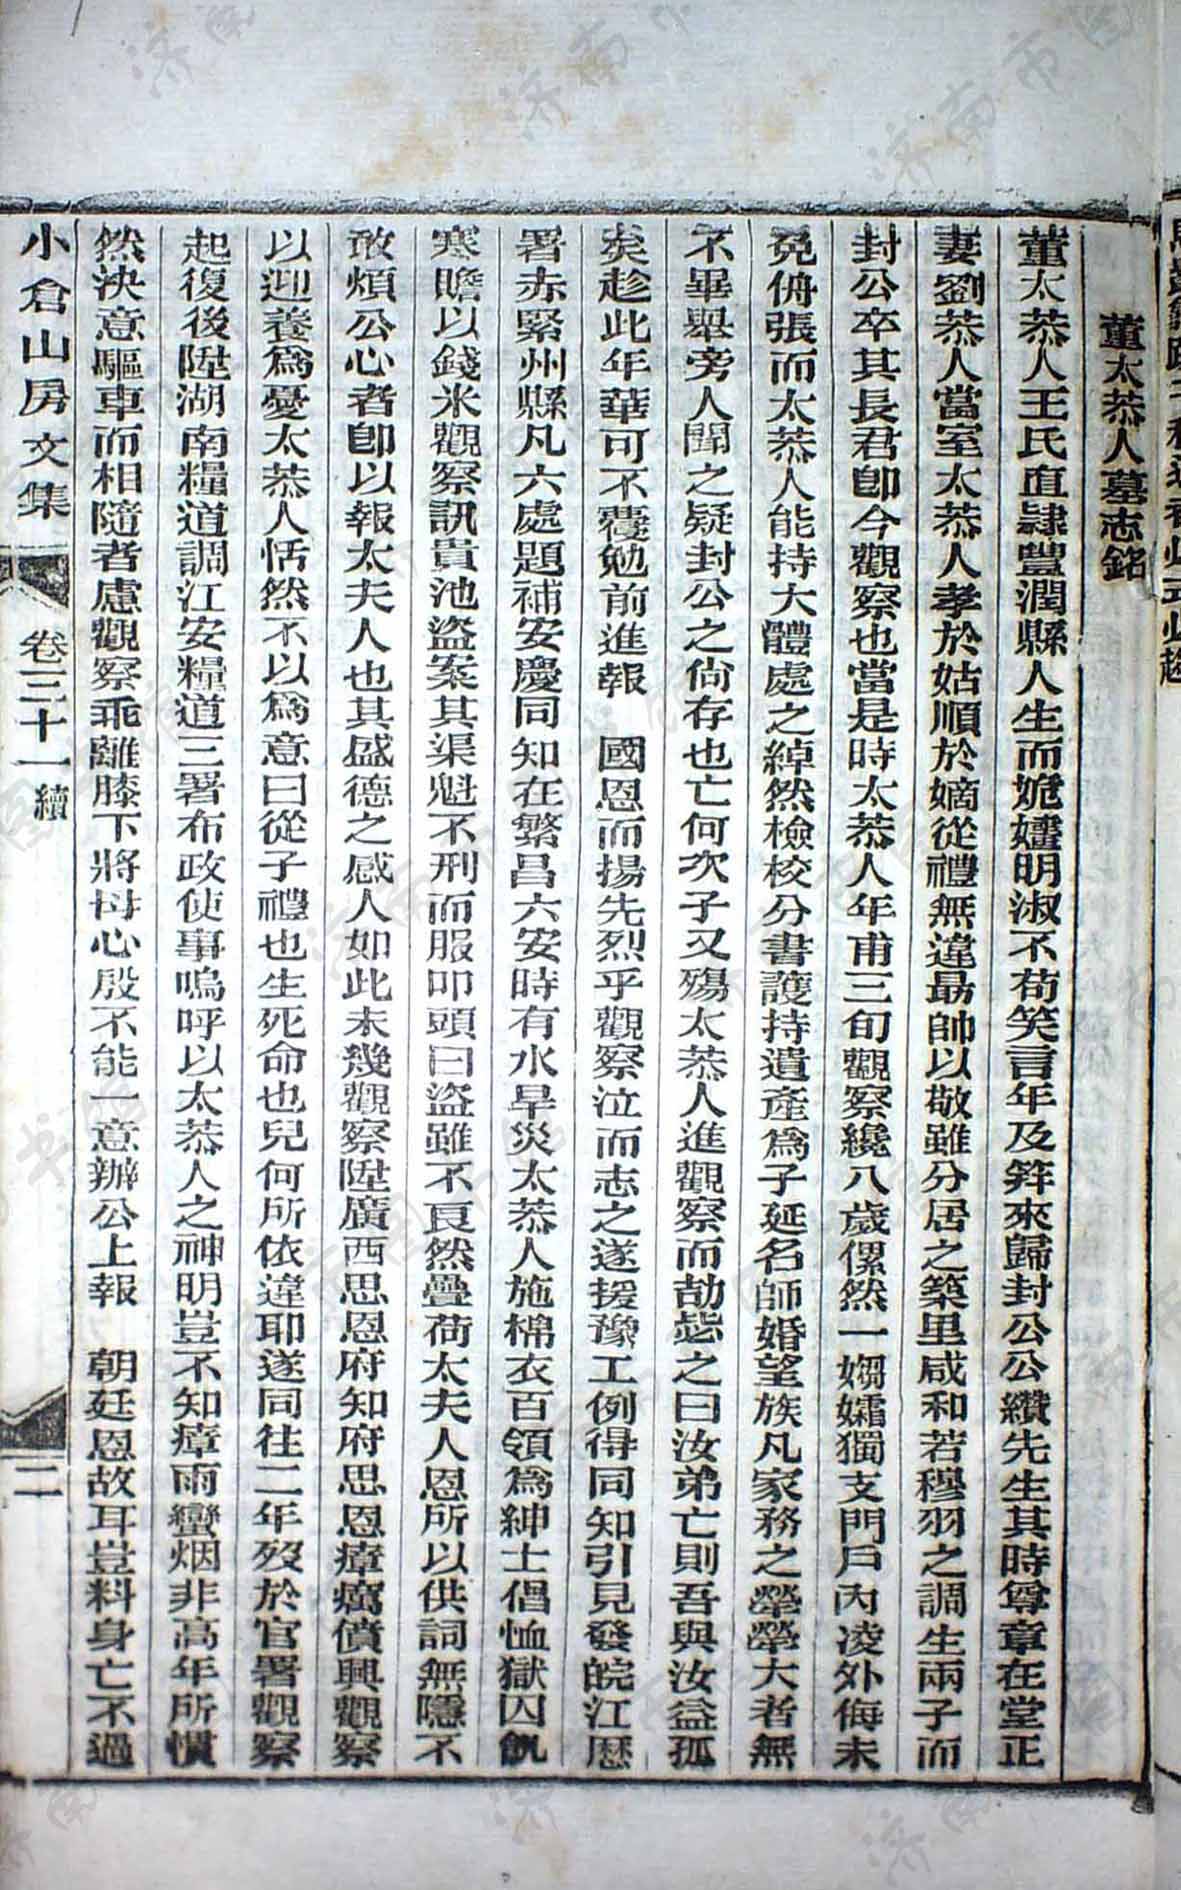 董太恭人墓志銘
董太恭人王氏直隸豐潤縣人生而姽嫿明淑不苟笑言年及笄來歸封公公纘先生其時尊章在堂正
妻劉恭人當室太恭人孝於姑順於嫡從禮無違最帥以敬雖分居之築里咸和若穆羽之調生兩子而
封公卒其長君卽今觀察也當是時太恭人年甫三旬觀察纔八歲傫然一媰孀獨支門戶內凌外侮未
免侜張而太恭人能持大體處之綽然檢校分書護持遺產爲子延名師婚望族凡家務之犖犖大者無
不畢舉旁人聞之疑封公之尙存也亡何次子又殤太恭人進觀察而劼毖之曰汝弟亡則吾與汝益孤
矣趁此年華可不蹇勉前進報 國恩而揚先烈乎觀察泣而志之遂援豫工例得同知引見發皖江歷
署赤緊州縣凡六處題補安慶同知在繁昌六安時有水旱災太恭人施棉衣百領爲紳士倡恤獄囚飢
寒贍以錢米觀察訊貴池盜案其渠魁不刑而服叩頭曰盜雖不良然疊荷太夫人恩所以供詞無隱不
敢煩公心者卽以報太夫人也其盛德之感人如此未幾觀察陞廣西思恩府知府思恩瘴癘僨興觀察
以迎養爲憂太恭人恬然不以爲意曰從子禮也生死命也兒何所依違耶遂同往二年歿於官署觀察
起復後陞湖南糧道調江安糧道三署布政使事嗚呼以太恭人之神明豈不知瘴雨蠻烟非高年所慣
然決意驅車而相隨者慮觀察乖離膝下將母心殷不能一意辦公上報 朝廷恩故耳豈料身亡不過
小倉山房文集 卷三十一續 二